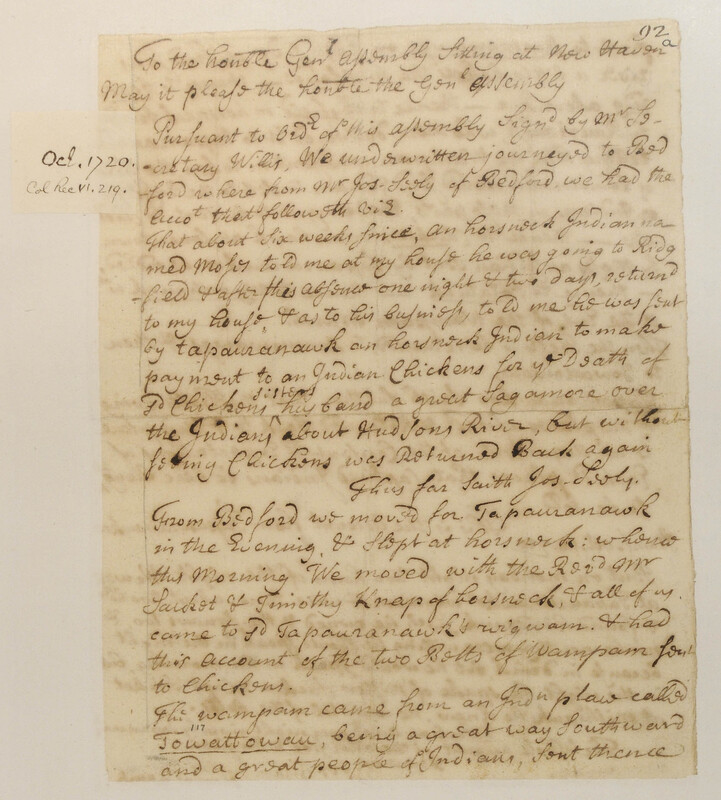 92
a
To the honble Genl Assembly Sitting at New Haven
May it please the honble the Genl Assembly
Pursuant to Ordr of this Assembly Signd by Mr Se-
-cretary Willis, We underwritten journeyed to Bed
Oct. 1720.
Col Rec VI. 219.
-ford where from Mr Jos-Seely of Bedford we had the
Accot that followeth viz.
That about six weeks since, an horsneck Indian na
med Moses told me at my house he was going to Ridg
-field & after his absence one night & two days, returnd
to my house, & as to his business, told me he was sent
by Tapauranawk an horsneck Indian to make
payment to an Indian Chickens for ye Death of
sd Chickens sisters husband a great Sagamore over
the Indians about Hudsons River, but without
seeing Chickens was Returned Back again
Thus far saith Jos-Seely.
From Bedford we moved for Tapauranawk
in the Evening, & slept at horsneck: whence
this Morning We moved with the Revd Mr
Sacket & Timothy Knap of horsneck, & all of us
came to sd Tapauranawk's wigwam. & had
this account of the two Belts of Wampam sent
to Chickens.
The wampam came from an Indn place called
Towattowau, being a great way Southward
and a great people of Indians, sent thence